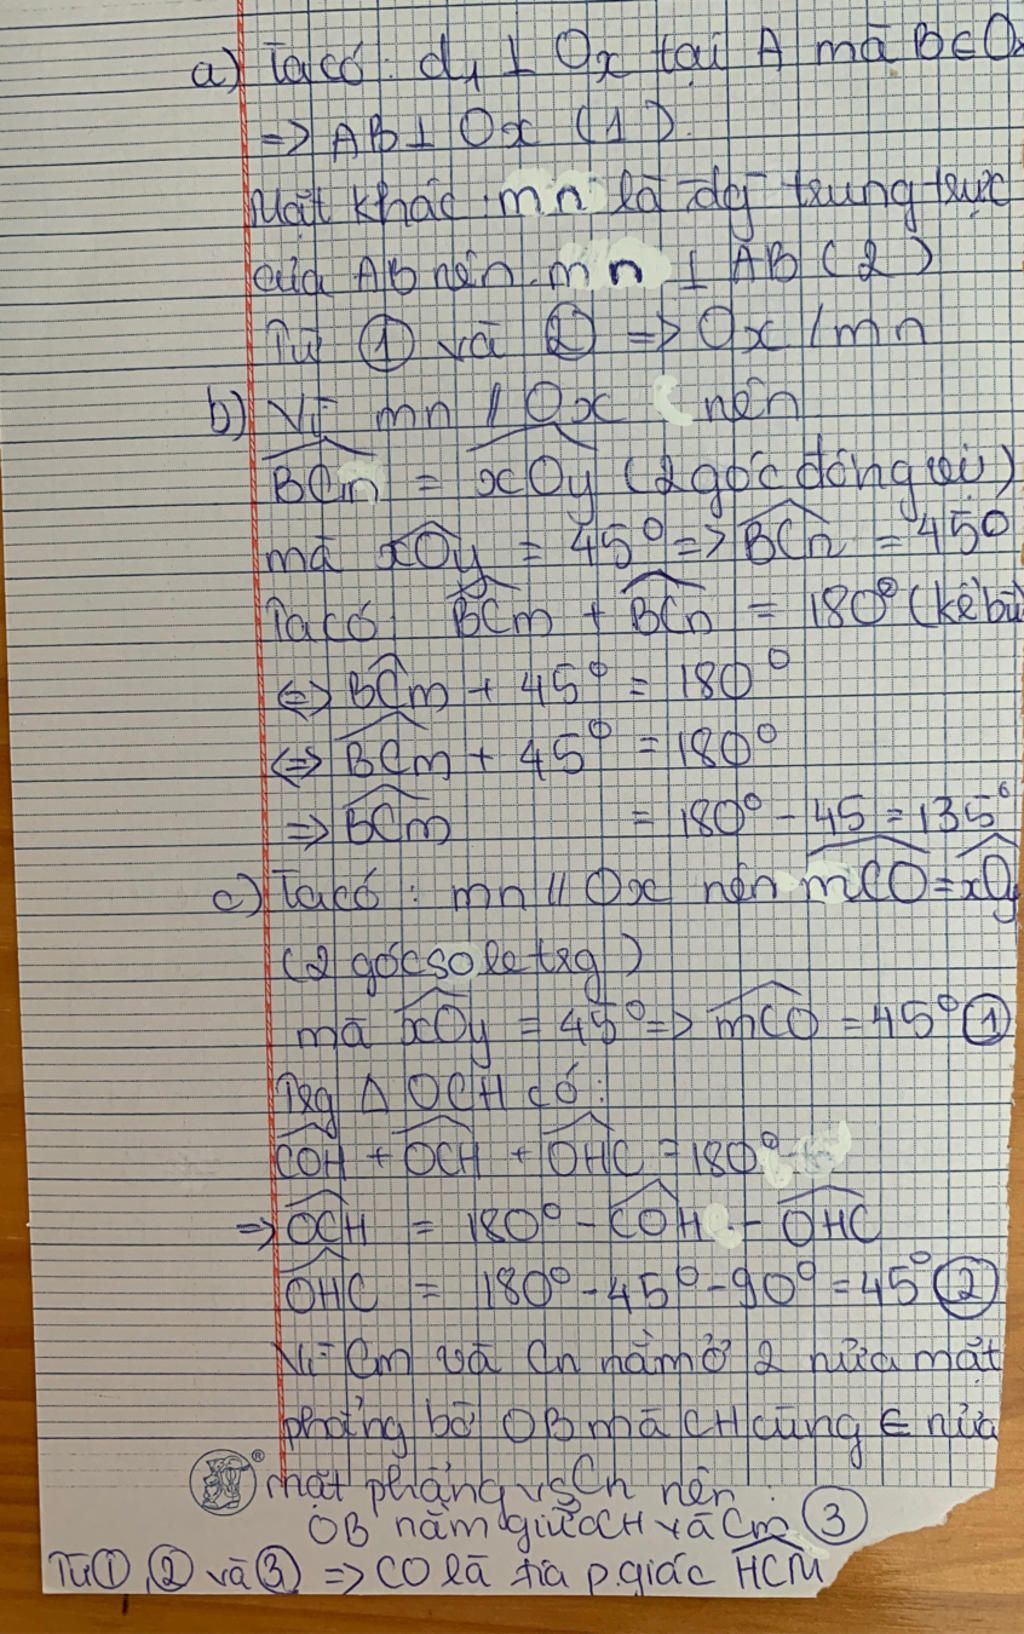 a) Ta có: d₁ ⊥ Ox tại A mà B∈Ox
=> AB ⊥ Ox (1)
Mặt khác mn là đg trung trực
của AB nên mn ⊥ AB (2)
Từ ① và ② => Ox / mn
b) Vì mn // Ox nên
BCn = xOy (2 góc đồng vị)
mà xOy = 45° => BCn = 45°
Ta có BCm + BCn = 180° (kề bù
<=> BCm + 45° = 180°
<=> BCm + 45° = 180°
=> BCm = 180° - 45 = 135°
c) Ta có : mn // Ox nên mCO = xOy
(2 góc so le trg)
mà xOy = 45° => mCO = 45° ①
Trg Δ OCH có:
COH + OCH + OHC = 180°
=> OCH = 180° - COH - OHC
OHC = 180° - 45° - 90° = 45° ②
Vì Cm và Cn nằm ở 2 nửa mặt
phẳng bờ OB mà CH cũng ∈ nửa
mặt phẳng vs Cn nên :
OB nằm giữa CH và Cm ③
Từ ①, ② và ③ => CO là tia p.giác HCM